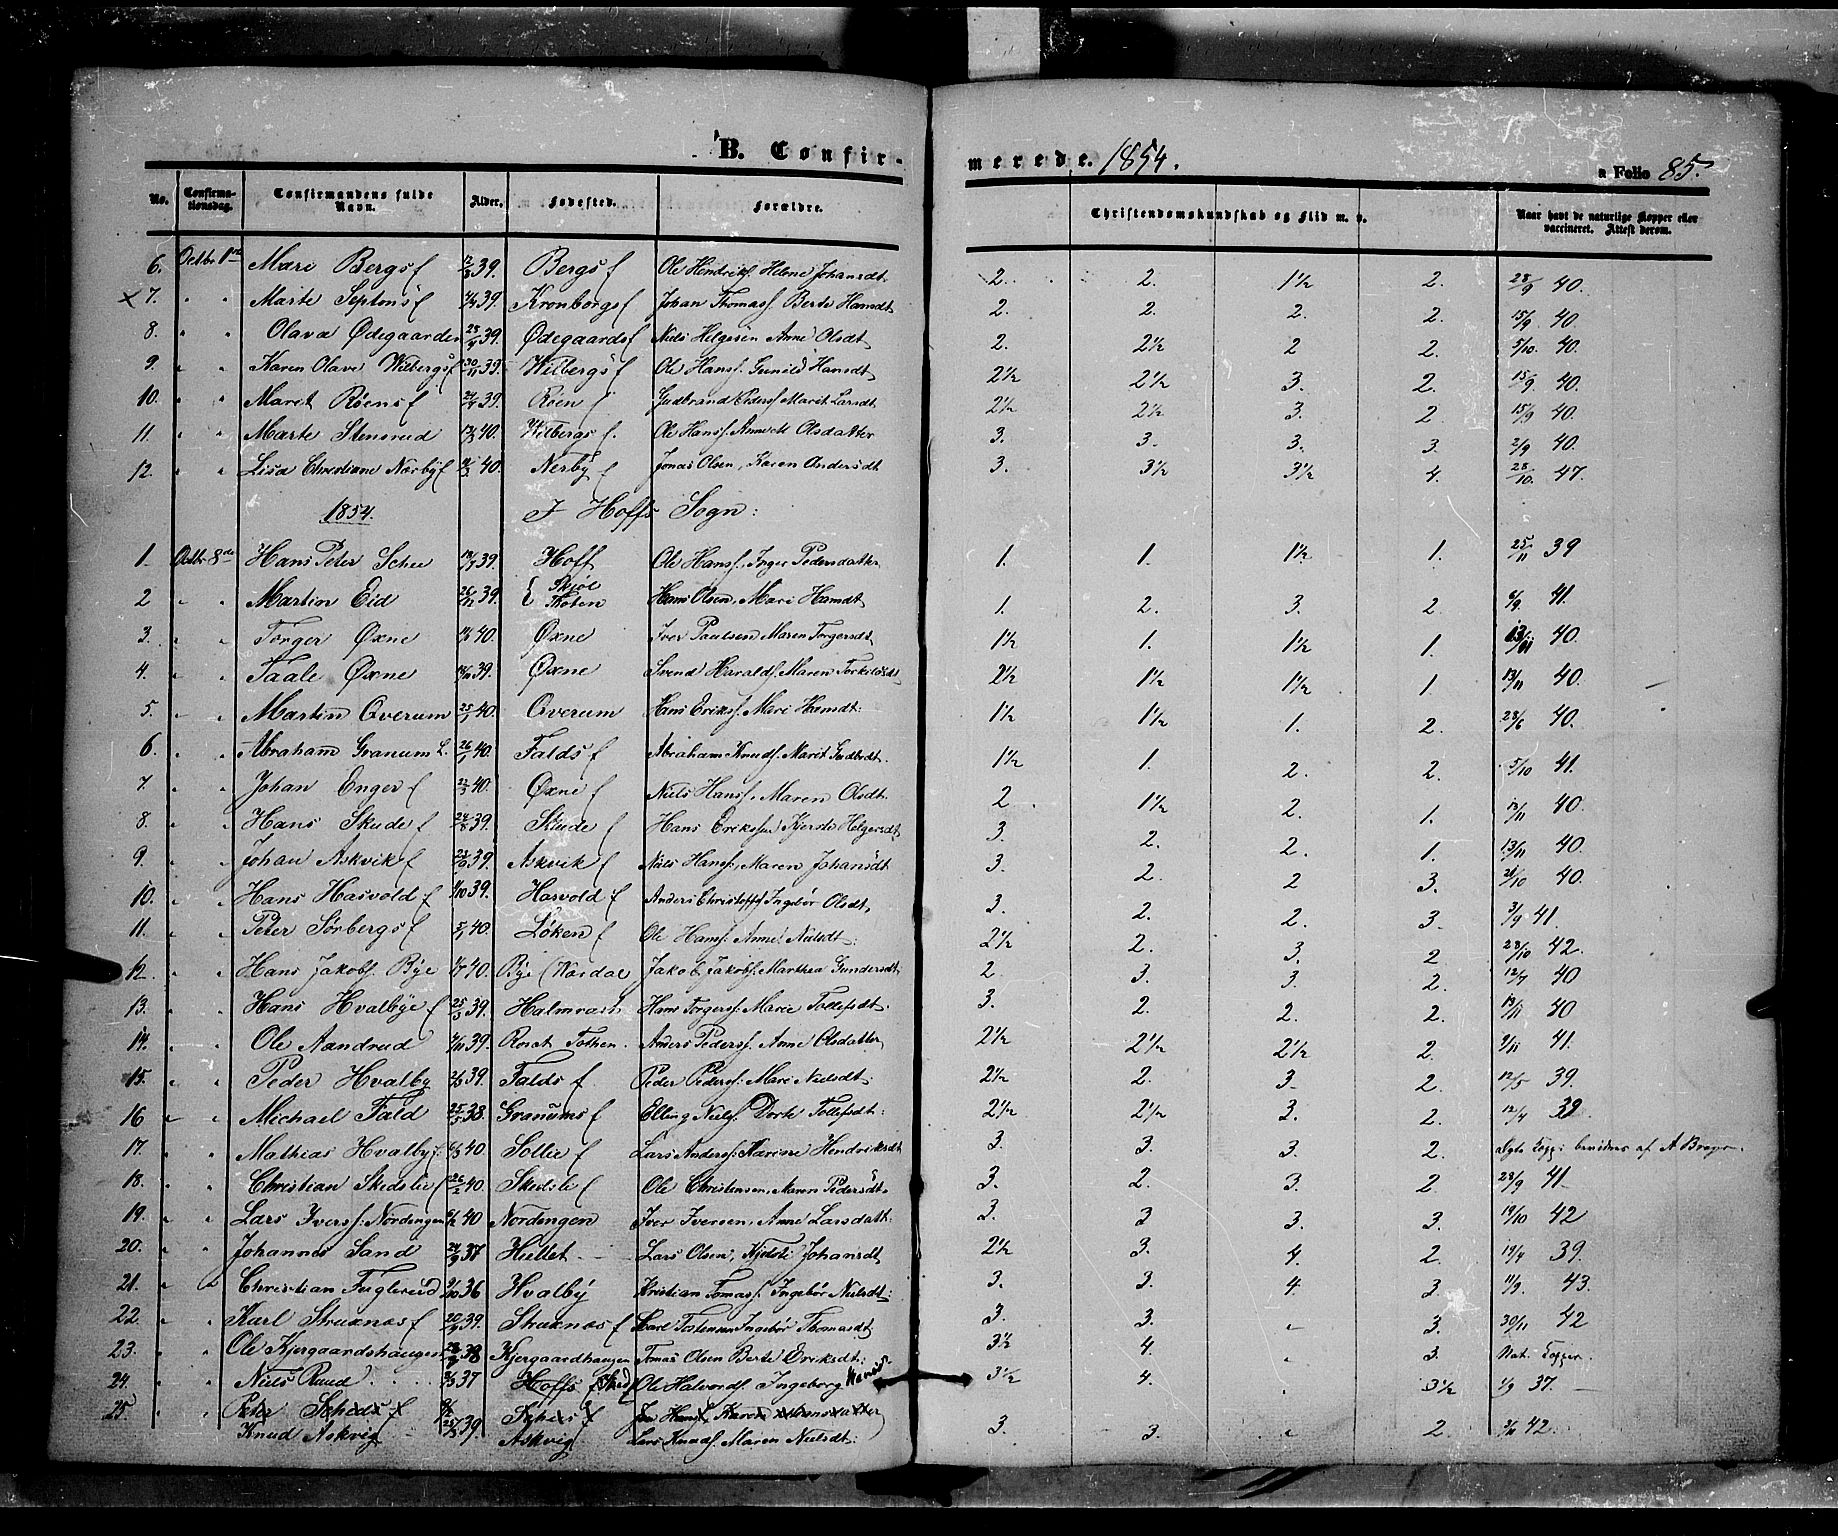 B. Confir- merede. 1854. a Folio 85.
No. Confirmationsdag. Confirmandens fulde Navn. Alder. Fødested. Forældre. Christendomskundskab og Flid m. v. Naar havt de naturlige Kopper eller vaccineret. Attest derom.
6. Octbr 1ste Mari Bergsf 39. Bergsf Ole Hendriks. Helene Johansdt. 2. 2. 1½ 2. 28/9 40.
x 7. " " Marte Septonsf 39. Kronborgsf Johan Thomass. Berte Hansdt 2. 2. 2. 2. 15/9 40.
8. " " Olava Ødegaarden 39. Ødegaardsf Niels Helgesen Anne Olsdt 2. 2½ 2 2. 5/10 40.
9. " " Karen Olave Wilbergsf 30/11 39. Wilbergsf Ole Hans. Gunild Hansdt 2½ 2½ 3. 2. 15/9 40.
10. " " Marit Røensf 39. Røen f Gudbrand Peders. Marit Larsdt 2½ 2½ 3. 2 15/9 40.
11. " " Marte Stensrud 40. Wilbergs f. Ole Hans. Anne M Olsdatter 3. 3. 3. 3 2/9 40.
12. " " Lisa Christiane Nærbyf 40. Nerby f Jonas Olsen, Karen Andersdt 3. 3½ 3½ 4. 28/10. 47.
1854. I Hoffs Sogn:
1. Octbr 8de Hans Peter Schee 39. Hoff Ole Hans. Inger Pedersdatter 1. 1. 1½ 1. 25/11 39
2 " " Martin Eid 26/12 39. { Skjøl Thoten Hans Olsen, Mari Hansdt 1. 2. 3. 2. 6/9 41.
3. " " Torger Øxne 40. Øxne Iver Paulsen Maren Torgersdt 1½ 1. 1½ 1. 13/11 40.
4. " " Taale Øxne 39. Øxne Svend Haralds. Maren Torkelsdt 2½ 1½ 1½ 1. 13/11 40.
5. " " Martin Overum 25/1 40. Overum Hans Eriks. Mari Hansdt. 1½ 1½ 1. 2. 23/6 40.
6. " " Abraham Granum L. 26/1 40. Falds f Abraham Knuds. Marit Gudbrdt. 1½ 1. 2. 2. 5/10 41.
7. " " Johan Enger f 40. Øxne f Niels Hans., Maren Olsdt. 2 1½ 2. 1. 13/11 40.
8. " " Hans Skude f 39. Skude f Hans Eriksen Kjersti Helgersdt 3. 2. 2. 1. 13/11 40.
9. " " Johan Askvik f 39. Askvik f Niels Hans. Maren Johansdt 3. 2. 2 3. 21/10 40.
10. " " Hans Hasvold f 1/10 39. Hasvold f Anders Christoffs. Ingebør Olsdt, 3. 2. 2. 3. 3/9 41.
11. " " Peter Sørbergsf 40. Løken f Ole Hans. Anne Nielsdt: 2½ 2. 3. 2 28/10 42.
12 " " Hans Jakobs. Bye 40. Bye (Wardal Jakob Jakobs. Marthea Gundersdt 2. 3. 3. 2. 12/7 40
13. " " Hans Hvalbye f 25/3 39. Halmrast Hans Torgers. Marie Tollefsdt. 3. 2. 2. 2. 13/11 40
14. " " Ole Aandrud 39. Tothen. Anders Peders. Anne Olsdatter 2½ 2½ 2½ 2. 9/11 41.
15. " " Peder Hvalby 39. Falds f. Peder Peders. Mari Nielsdt. 2½ 2. 3. 2. 12/5 39.
16 " " Michael Fald 25/3 38. Granums f Elling Niels. Dorte Tollefsdt: 2½ 2½ 3. 2. 12/4 39.
17. " " Mathias Hvalby f. 40 Sollie f Lars Anders. Karine Hendriksdt 3. 3. 3. 2. ægte Kopp: bevidnes af A
18. " " Christian Skedslie f 26/2 40. Skedslie f Ole Christensen, Maren Pedersdt. 3. 2. 3. 2 28/9 41
19. " " Lars Ivers. Nordengen 40 Nordengen Iver Iversen, Anne Larsdatt: 3. 3 3. 3. 19/10 42
20. " " Johannes Sand 37 Hullet Lars Olsen, Kjersti Johansdt 2½ 3. 4. 2. 19/4 39.
21. " " Christian Fuglerud 36 Hvalby Kristian Tomass. Ingebør Nielsdt: 3. 3. 4 3. 11/9. 43.
22. " " Karl Struknæs f 20/9 39. Struknæs f Karl Tostensen Ingebør Thomasdt 3. 3. " 3. 30/11 42
23. " " Ole Kjergaardshaugen 38 Kjergaardhaugen Tomas Olsen Berte Eriksdt: 3½ 4. " 3. Nat. Kopper.
24. " " Niels Ruud 37 Hoffs f Ole Halvords. Ingeborg Hansd. 3½ 4. " 3½ 1/9 37.
25. " " Peter Scheds f Scheds f Hans. Karen Hansdatter
Knud Askvig 39. Askvig Lars Knuds. Maren Nielsdt: 3. 3. " 2. 42.